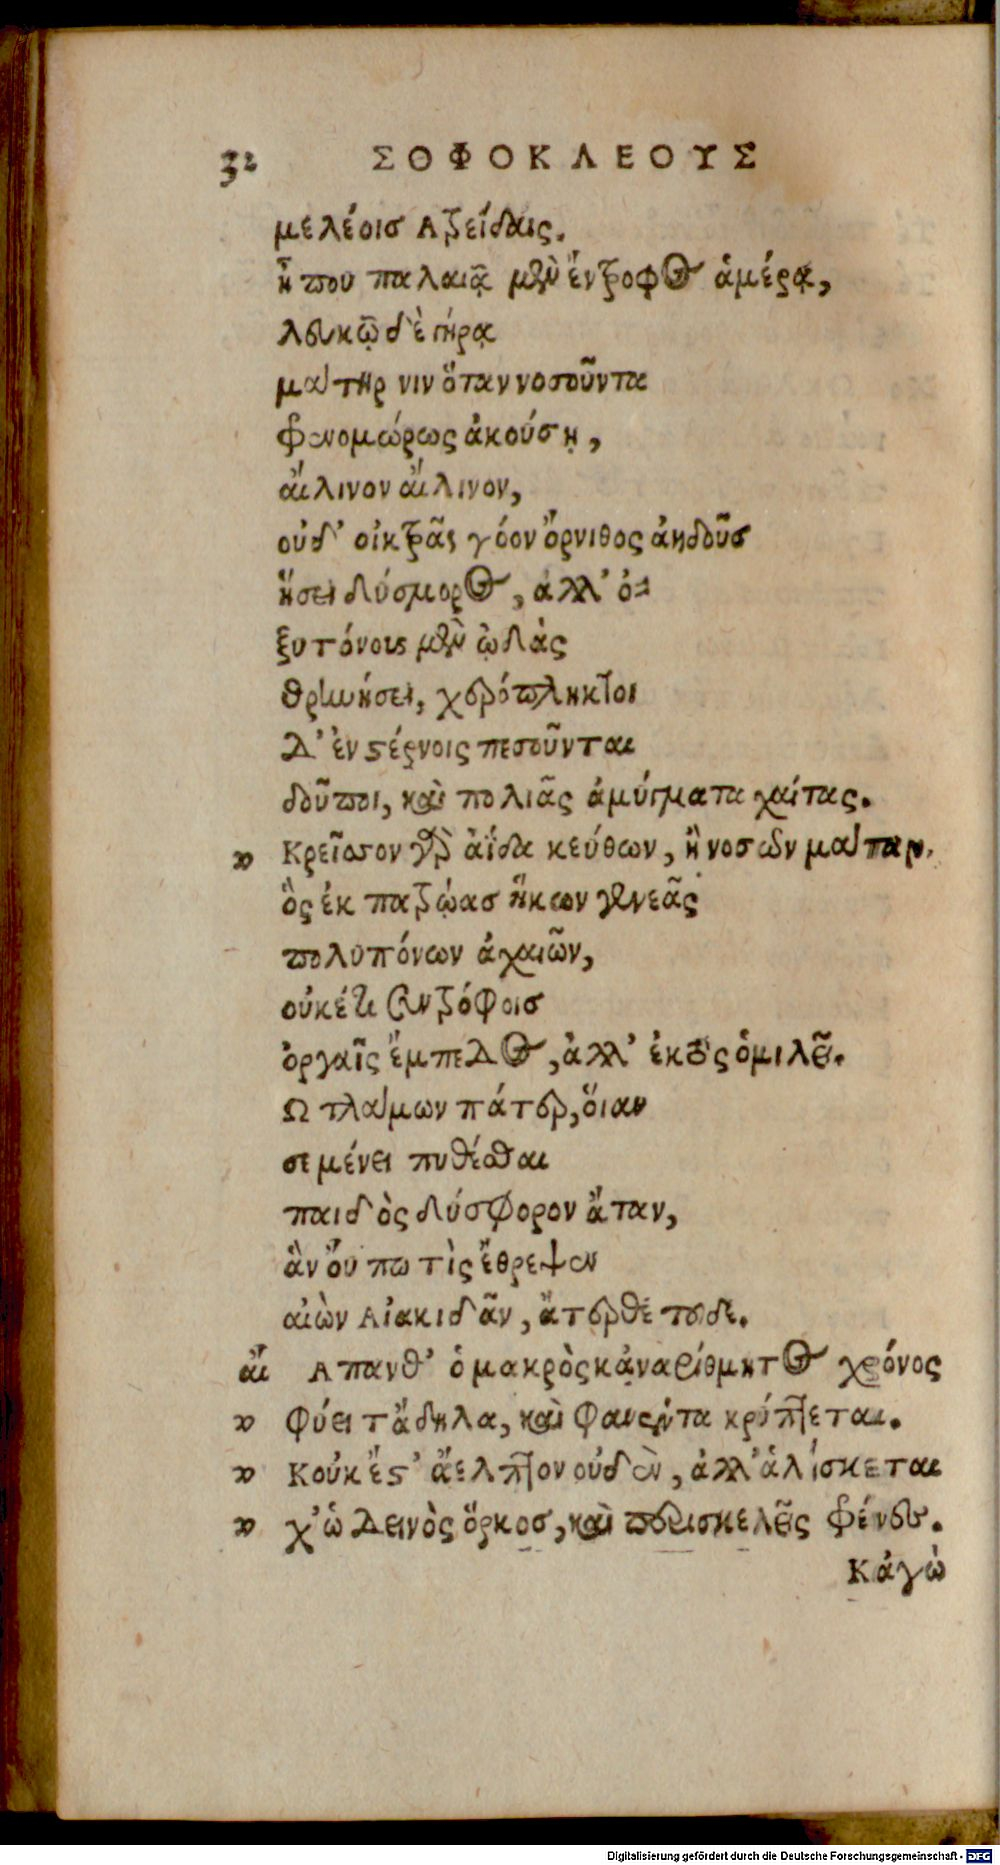 32 ΣΟΦΟΚΛΕΟΥΣ
μελέοις Ἀτρείδαις.
ἤ που παλαιᾷ μὲν ἔντροφος ἁμέρᾳ,
λευκῷ δὲ γήρᾳ
μάτηρ νιν ὅταν νοσοῦντα
φρενομώρως ἀκούσῃ,
αἴλινον αἴλινον,
οὐδ’ οἰκτρᾶς γόον ὄρνιθος ἀηδοῦς
ἥσει δύσμορος, ἀλλ’ ὀ-
ξυτόνους μὲν ᾠδὰς
θρηνήσει, χερόπληκτοι
δ’ ἐν στέρνοις πεσοῦνται
δοῦποι, καὶ πολιᾶς ἀμύγματα χαίτας.
ν Κρεῖσσον γὰρ ἀΐδα κεύθων, ἢ νοσῶν μάταν.
ὃς ἐκ πατρῴας ἥκων γενεᾶς
πολυπόνων ἀχαιῶν,
οὐκέτι συντρόφοις
ὀργαῖς ἔμπεδος, ἀλλ’ ἐκτὸς ὁμιλεῖ.
Ω τλάμων πάτερ, οἵαν
σε μένει πυθέσθαι
παιδὸς δύσφορον ἄταν,
ἃν οὔπω τὶς ἔθρεψεν
αἰὼν Αἰακιδᾶν, ἄτερθε τοῦδε.
αἴ Απανθ’ ὁ μακρὸς κἀναρίθμητος χρόνος
ν Φύει τ’ ἄδηλα, καὶ φανέντα κρύπτεται.
ν Κοὐκ ἔστ’ ἄελπτον οὐδὲν, ἀλλ’ ἁλίσκεται
ν χ’ ὡ δεινὸς ὅρκος, καὶ περισκελεῖς φρένες.
Κἀγὼ
Digitalisierung gefördert durch die Deutsche Forschungsgemeinschaft - DFG